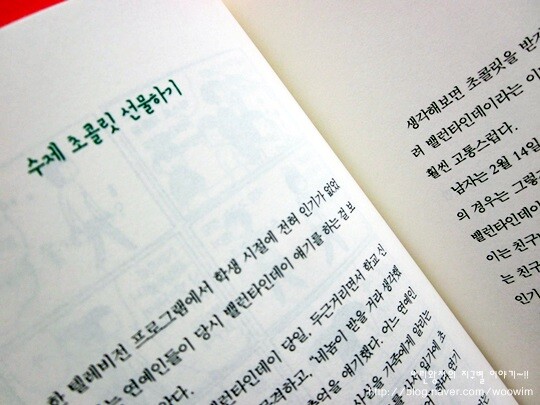 수제 초콜릿 선물하기
한 텔레비전 프로그램에서 학생 시절에 전혀 인기가 없었
는 연예인들이 당시 밸런타인데이 얘기를 하는 걸 보
밸런타인데이 당일, 두근거리면서 학교 신
고, '내놈이 받을 거라 생각했
추억을 얘기했다. 어느 연예인
사실을 가족에게 알리는
초
여기
생각해보면 초콜릿을 받거
려 밸런타인데이라는 이
훨씬 고통스럽다.
남자는 2월 14일
의 경우는 그렇
밸런타인데이
이는 친구
는 친구
인기
http://blog.naver.com/woowim